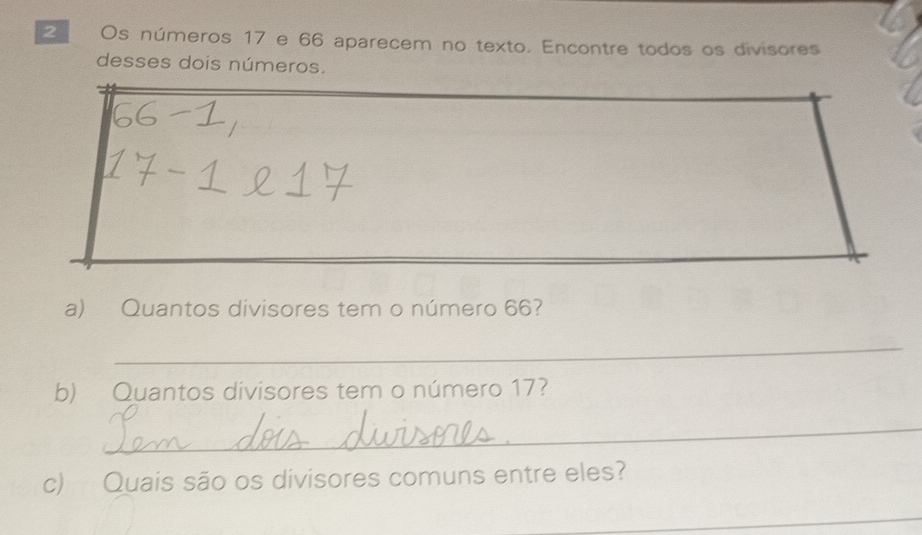 2 Os números 17 e 66 aparecem no texto. Encontre todos os divisores
desses dois números.
66-1,
17-1 e 17
a) Quantos divisores tem o número 66?
b) Quantos divisores tem o número 17?
Tem dois divisores.
c) Quais são os divisores comuns entre eles?